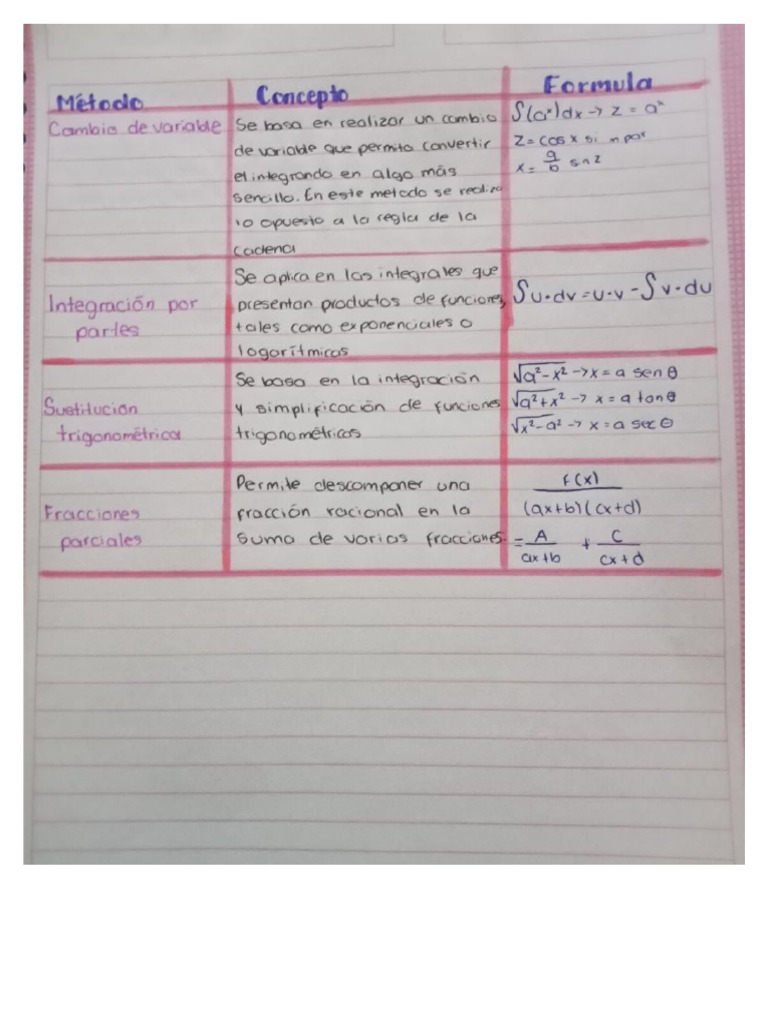 Método Concepto Formula
Cambio de variable
Se basa en realizar un cambio
de variable que permita convertir
el integrando en algo más
sencillo. En este metodo se realiza
lo opuesto a la regla de la
cadena
∫(aˣ)dx → z = aˣ
z = cos x si n par
x = a/b sn z
Integración por
partes
Se aplica en las integrales que
presentan productos de funciones,
tales como exponenciales o
logorítmicas
∫u·dv = u·v - ∫v·du
Sustitución
trigonométrica
Se basa en la integración
y simplificación de funciones
trigonométricas
√a²-x² → x = a sen θ
√a²+x² → x = a tan θ
√x²-a² → x = a sec θ
Fracciones
parciales
Permite descomponer una
fracción racional en la
suma de varias fracciones.
F(x)
(ax+b)(cx+d)
= A/ax+b + C/cx+d